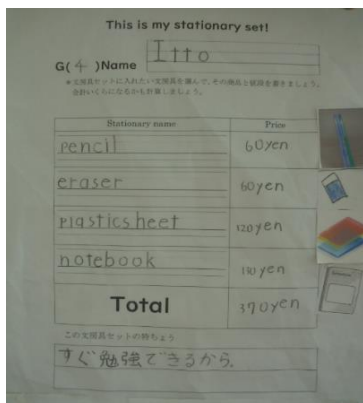 This is my stationary set!
G( 4 )Name Itto
＊文房具セットに入れたい文房具を選んで、その商品と値段を書きましょう。
合計いくらになるかも計算しましょう。
Stationary name Price
pencil 60yen
eraser 60yen
plasticsheet 120yen
notebook 130yen
Total 370yen
この文房具セットの特ちょう
すぐ勉強できるから。